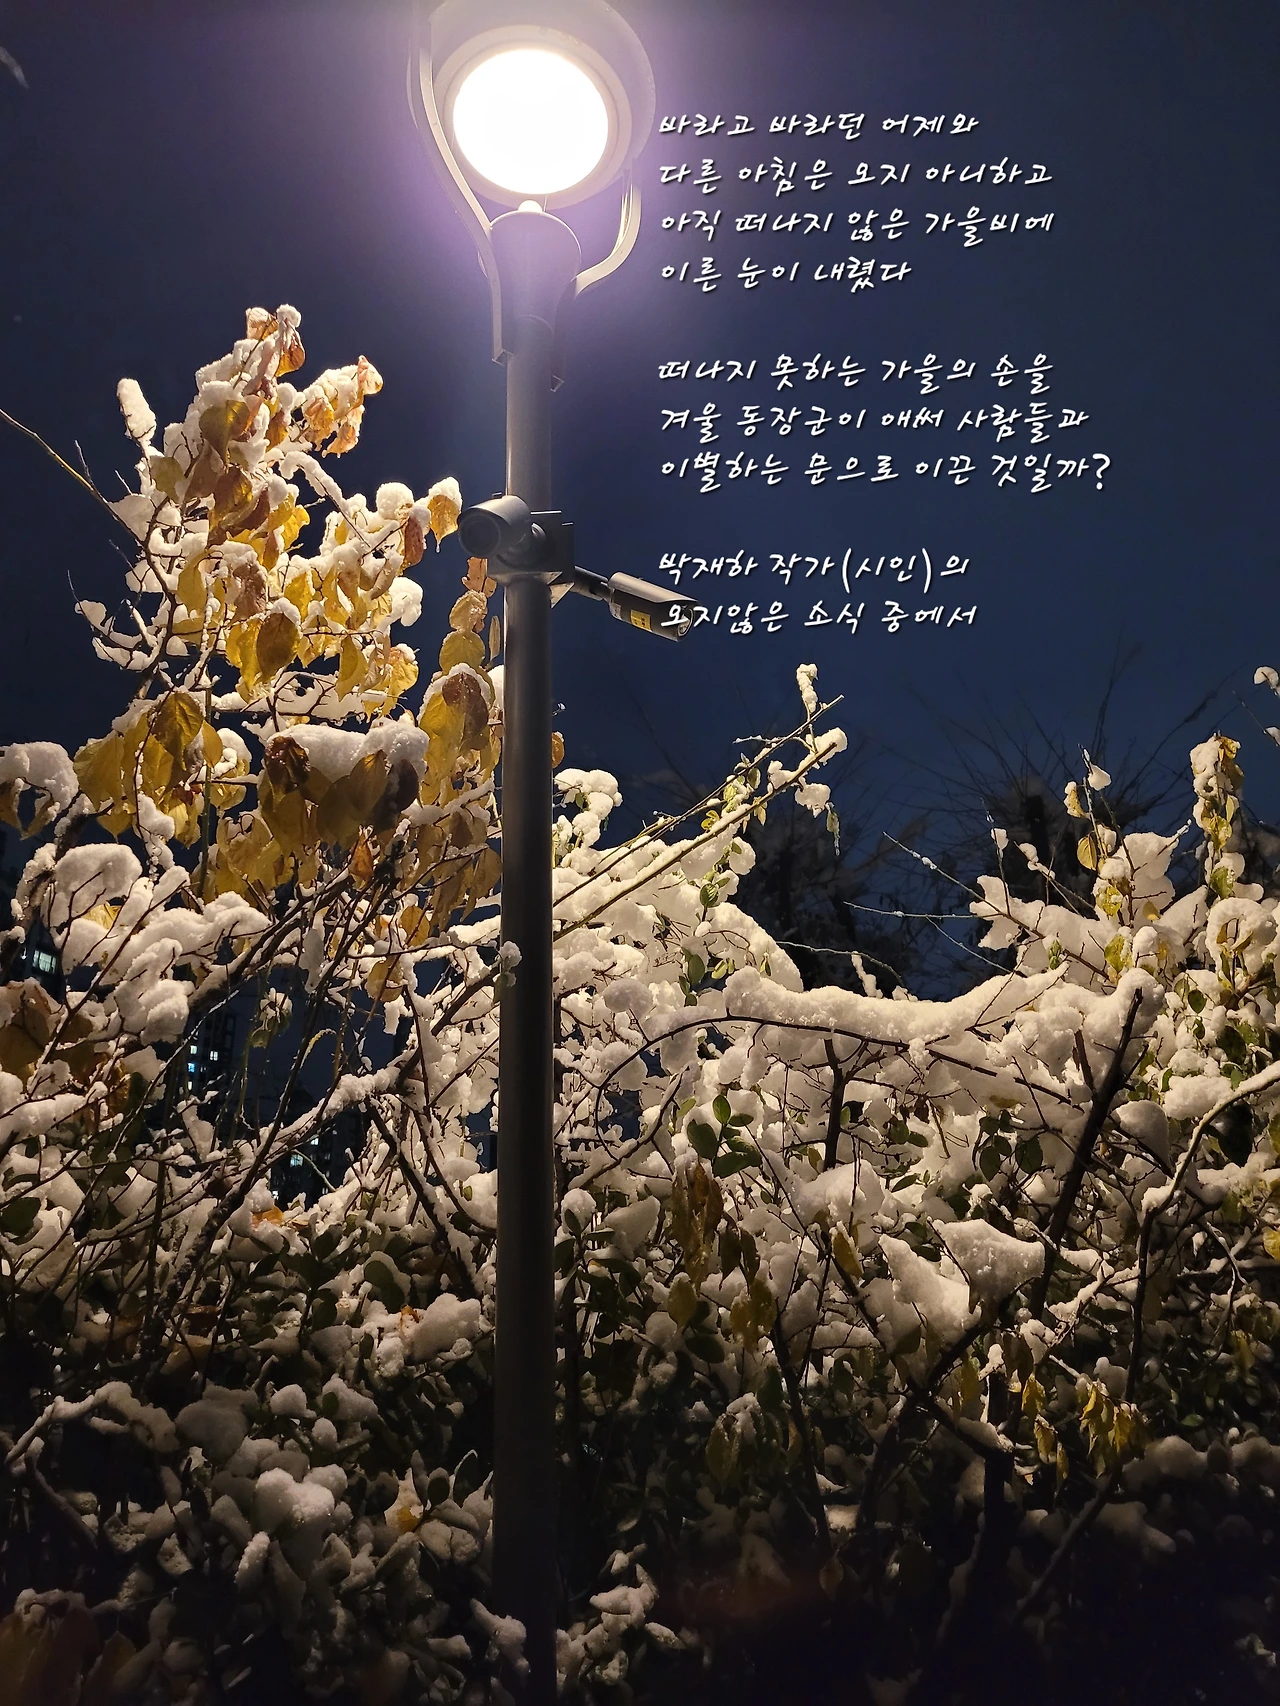 바라고 바라던 어제와
다른 아침은 오지 아니하고
아직 떠나지 않은 가을비에
이른 눈이 내렸다
떠나지 못하는 가을의 손을
겨울 동장군이 애써 사람들과
이별하는 문으로 이끈 것일까?
박재하 작가(시인)의
오지않은 소식 중에서